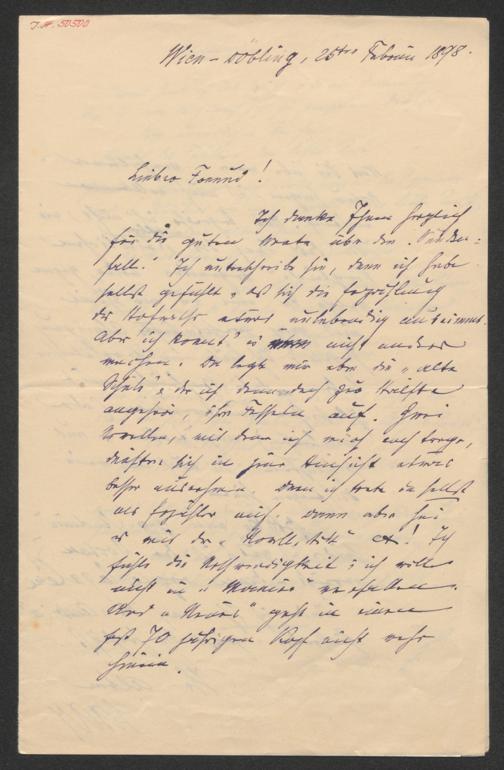 J.N. 50500
Wien-Döbling, 25ten Februar 1898.
Lieber Freund!
Ich danke Ihnen herzlich
für die guten Worte über den "Sünden-
fall." Ich unterschreibe sie, denn ich habe
selbst gefühlt, daß sich die Erzählung
des Hofraths etwas unlebendig ausnimmt.
Aber ich konnt' es nicht anders
machen. Da legte mir eben die "alte
Schule" der ich denn doch zur Hälfte
angehöre, ihre Fesseln auf. Zwei
Novellen, mit denen ich mich noch trage,
dürften sich in jener Hinsicht etwas
besser ausnehmen denn ich trete da selbst
als Erzähler auf. dann aber sei
es mit der "Novellistik" aus! Ich
fühle die Nothwendigkeit; ich will
nicht in "Manier" verfallen.
Und "Neues" geht in einen
fast 70 jährigen Kopf nicht mehr
hinein.